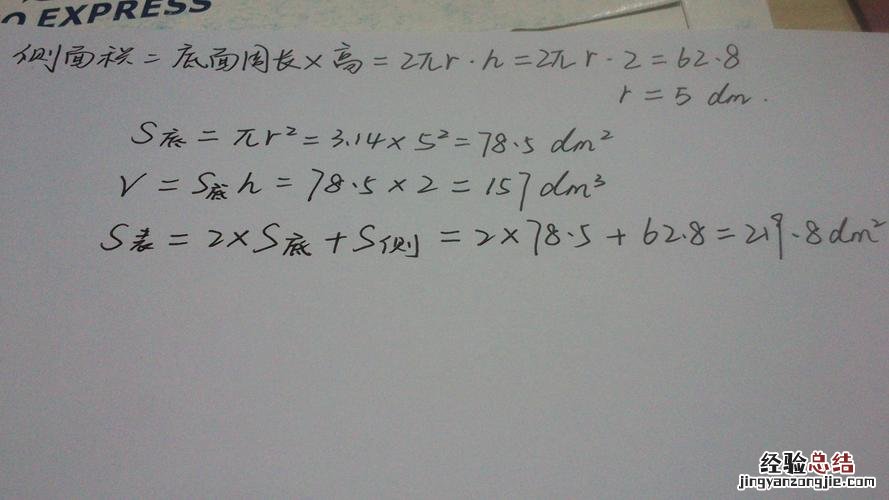 O EXPRESS
侧面积=底面周长×高=2πr·h=2πr·2=62.8
r=5 dm.
S底=πr²=3.14×5²=78.5 dm²
V=S底h=78.5×2=157dm³
S表=2×S底+S侧=2×78.5+62.8=219.8dm²
经验总结
jingyanzongjie.com